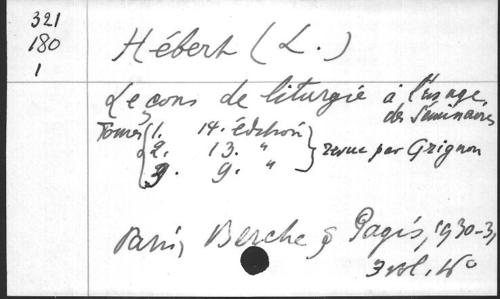 321
180
1
Hébert (L.)
Leçons de liturgie à l'usage
des Séminaires
Tomes { 1. 14. édition }
2. 13. " } revue par Grignon
3. 9. "
Paris, Berche & Pagis, 1930-3,
3 vol. in-